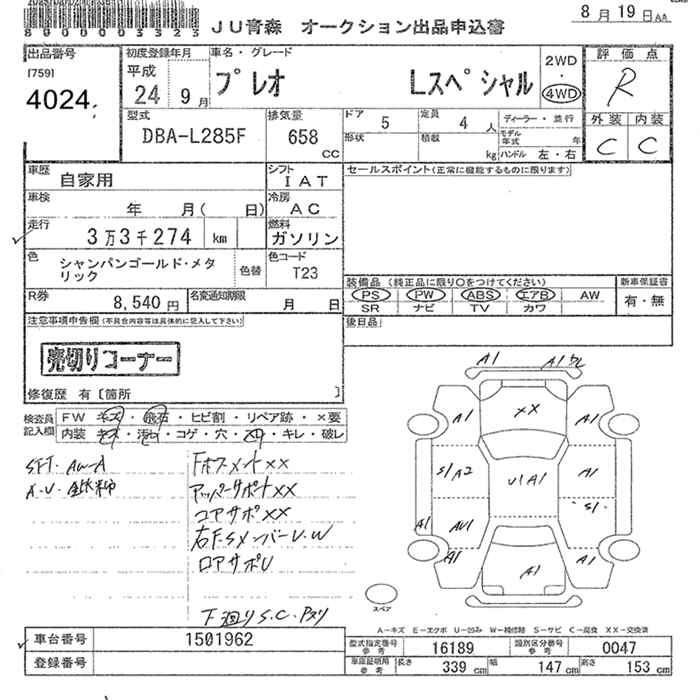 800000033323
JU青森 オークション出品申込書
8月19日
出品番号
[759]
4024
初度登録年月
平成
24 9月
車名・グレード
プレオ Lスペシャル
2WD
・
4WD
評価点
R
外装 内装
C C
型式
DBA-L285F
排気量
658
cc
ドア 5
形状
定員 4 人
積載 kg
ディーラー・並行
モデル年式 年
ハンドル 左・右
車歴
自家用
シフト
IAT
セールスポイント(正常に機能するものに限ります)
車検
年 月( 日)
冷房
AC
走行
3万3千274 km
燃料
ガソリン
色
シャンパンゴールド・メタ
リック
色替
色コード
T23
装備品(純正品に限り○をつけてください)
PS PW ABS エアB AW
SR ナビ TV カワ
新車保証書
有・無
R券
8,540 円
名変通知期限
月 日
後日品
注意事項申告欄(不具合内容等は具体的に記入して下さい)
売切りコーナー
修復歴 有〔箇所 〕
検査員
記入欄
FW キズ・飛石・ヒビ割・リペア跡・×要
内装 キズ・汚れ・コゲ・穴・メクレ・キレ・破レ
Fホスメント××
アッパーサポート××
コアサポ××
右F.SメンバーU.W
ロアサポU
下廻りS.C.
A1
A1
A1
××
A1
S/A2
U1A1
A1
S1
A1
AU1
A1
A1
A1
スペア
A−キズ E−エクボ U−凹み W−補修跡 S−サビ C−腐食 ××−交換済
車台番号
1501962
登録番号
型式指定番号
参考
16189
類別区分番号
参考
0047
車庫証明用
参考
長さ 339 cm
幅 147 cm
高さ 153 cm